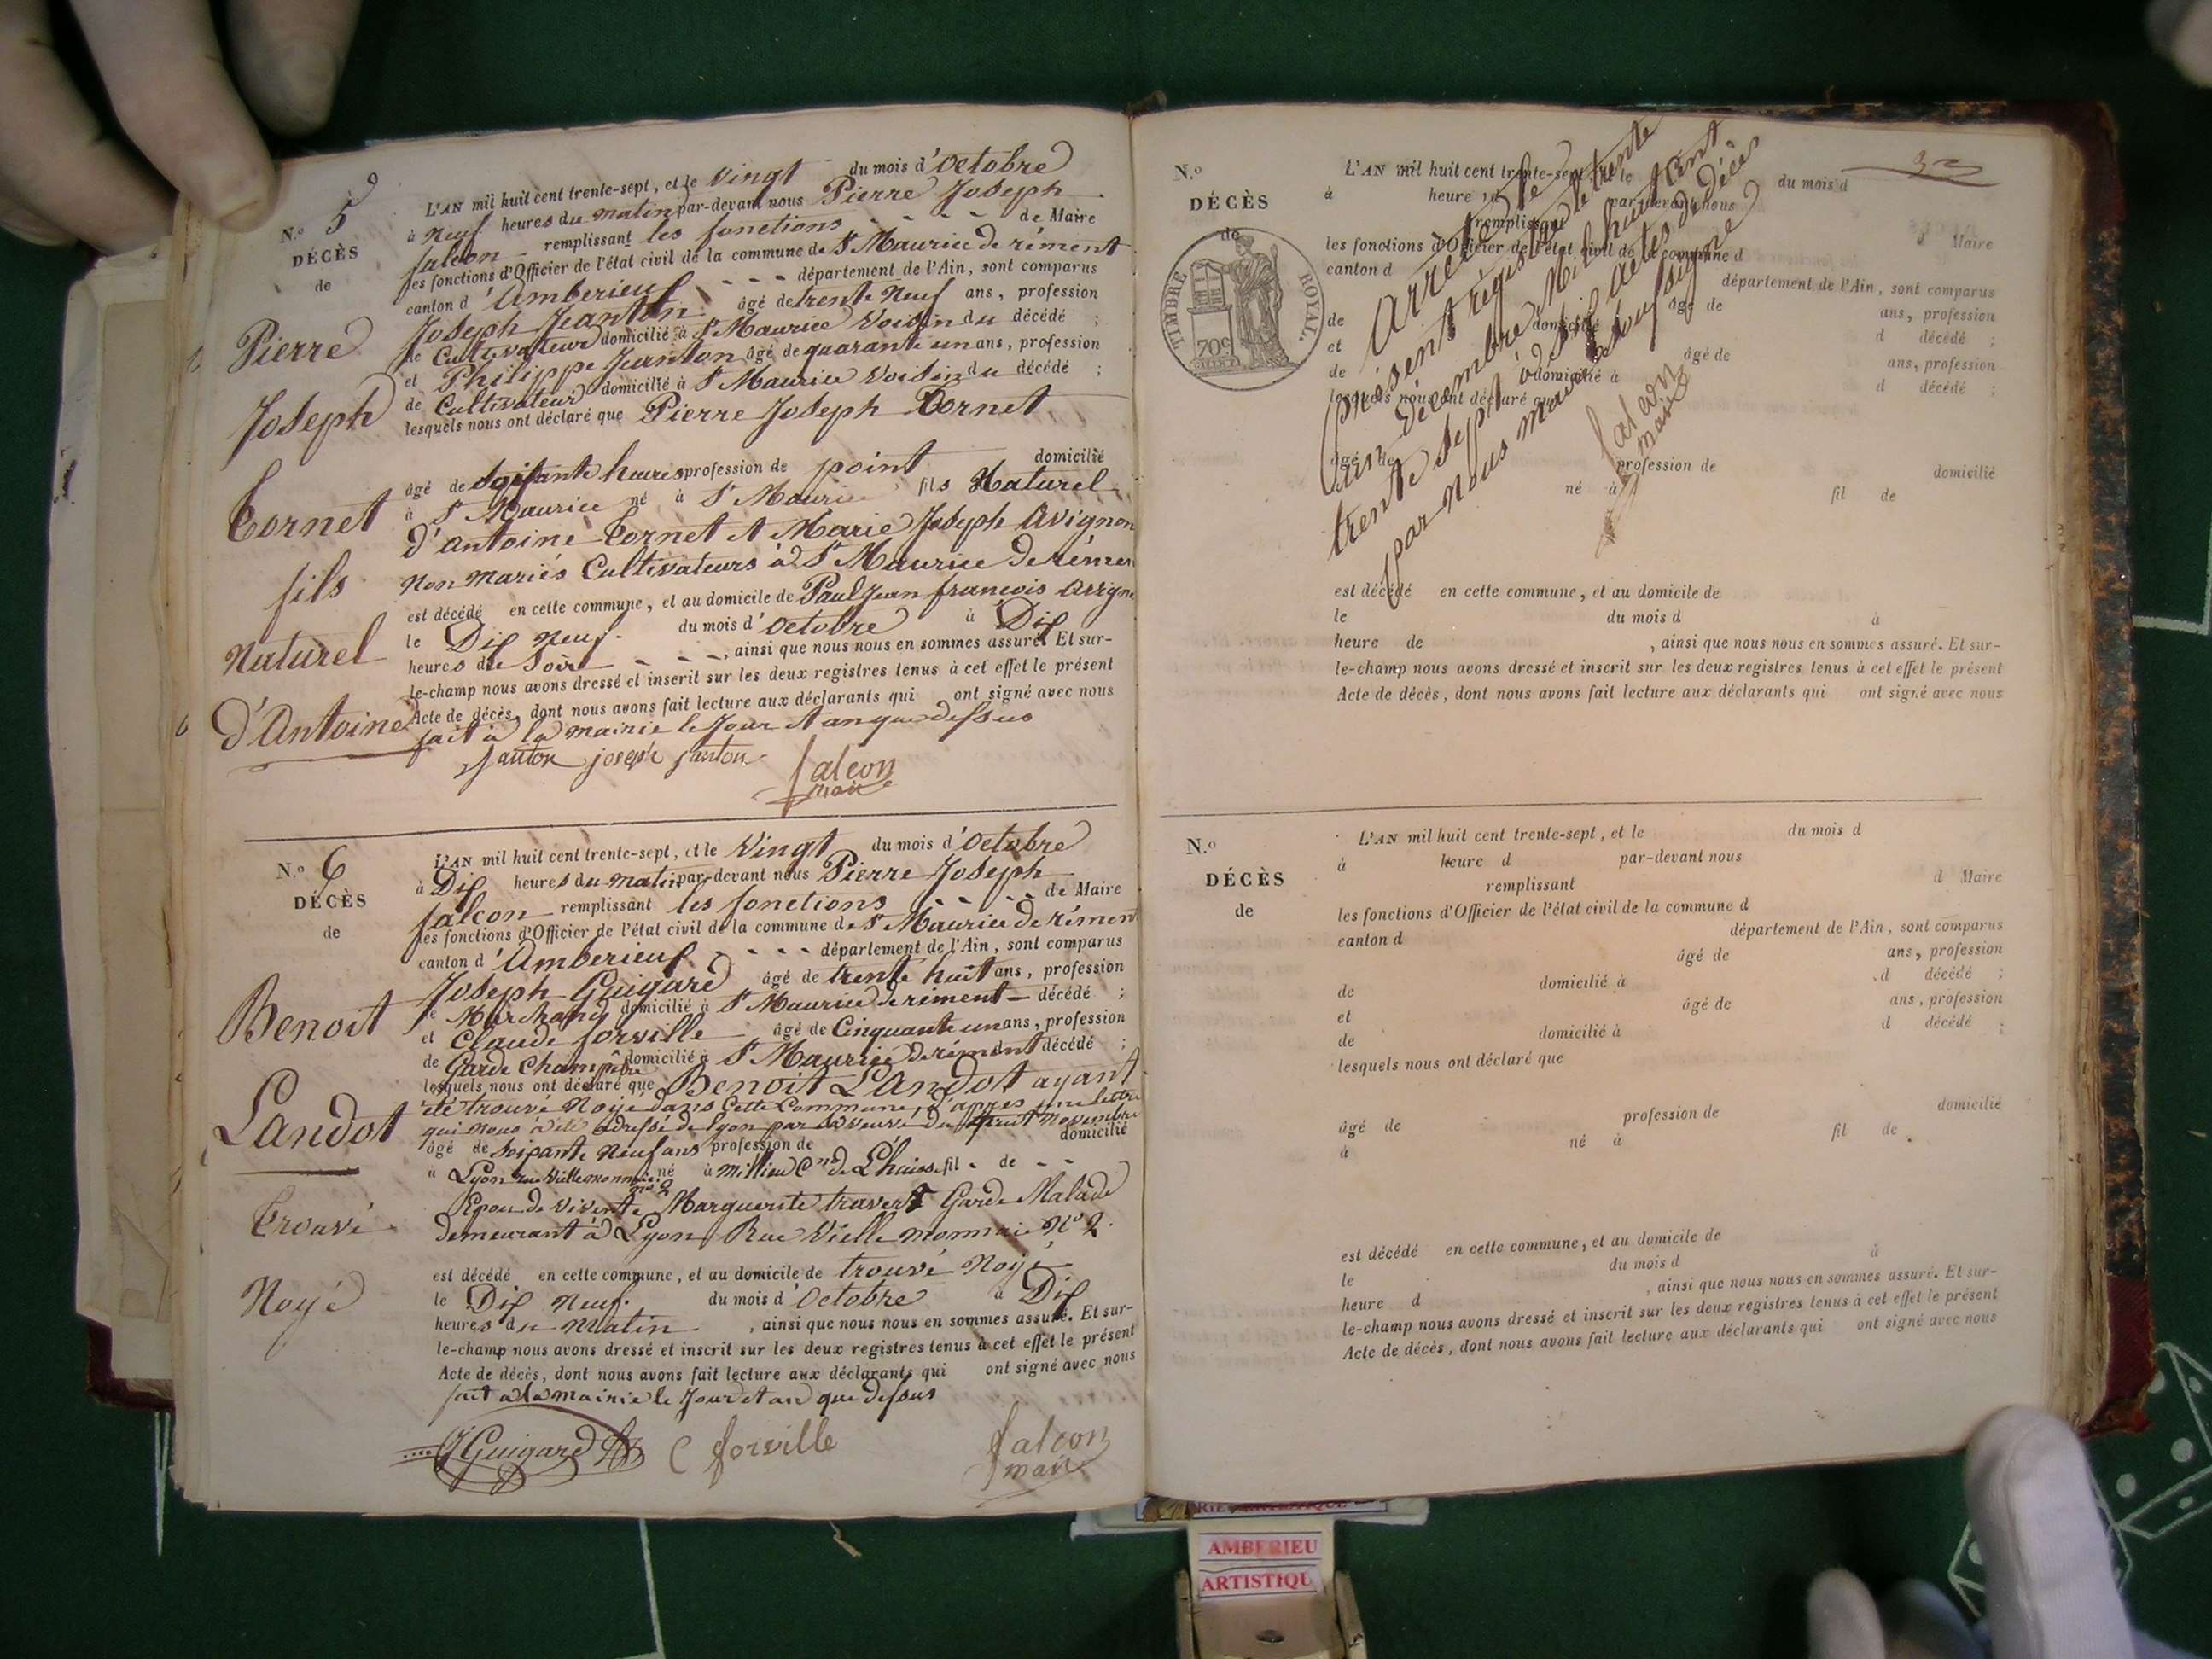 N.º 5
DÉCÈS
de
Pierre
Joseph
Cornet
fils
Naturel
d'Antoine
L'AN mil huit cent trente-sept, et le vingt du mois d'Octobre
à Neuf heures du matin par-devant nous Pierre Joseph
falcon remplissant les fonctions - - - - de Maire
les fonctions d'Officier de l'état civil de la commune de St Maurice de rément
canton d'Amberieux - - - département de l'Ain, sont comparus
Joseph Jeanton âgé de trente Neuf ans, profession
de Cultivateur domicilié à St Maurice Voisin du décédé ;
et Philippe Jeanton âgé de quarante un ans, profession
de Cultivateur domicilié à St Maurice Voisin du décédé ;
lesquels nous ont déclaré que Pierre Joseph Cornet
âgé de Soixante heures profession de point domicilié
à St Maurice né à St Maurice fils Naturel
d'Antoine Cornet et Marie Joseph Avignon
Non mariés Cultivateurs à St Maurice De rémen
est décédé en cette commune, et au domicile de Paul Jean francois
le Dix Neuf du mois d'Octobre à Dix
heures du Soir - - -, ainsi que nous nous en sommes assuré. Et sur-
le-champ nous avons dressé et inscrit sur les deux registres tenus à cet effet le présent
Acte de décès, dont nous avons fait lecture aux déclarants qui ont signé avec nous
fait à la mairie le Jour et an que dessus
joseph janton
falcon
maire
N.º 6
DÉCÈS
de
Benoit
Landot
Trouvé
Noyé
L'AN mil huit cent trente-sept, et le Vingt du mois d'Octobre
à Dix heures du matin par-devant nous Pierre Joseph
falcon remplissant les fonctions - - - de Maire
les fonctions d'Officier de l'état civil de la commune de St Maurice de rément
canton d'Amberieux - - - - département de l'Ain, sont comparus
Joseph Guigard âgé de trente huit ans, profession
de Marchand domicilié à St Maurice de rément - décédé ;
et Claude forville âgé de Cinquante un ans, profession
de Garde Champêtre domicilié à St Maurice de rément décédé ;
lesquels nous ont déclaré que Benoit Landot ayant
été trouvé Noyé dans Cette Commune, d'apres une lettre
qui nous a été adressé de Lyon par Sa veuve du Novembre
âgé de Soixante Neuf ans profession de domicilié
à Lyon rue Vielle monnaie no 2 né à Millieu Cne de Lhuis fil - de - -
Epou de vivente Marguerite travert Garde Malade
demeurant à Lyon Rue Vielle monnaie No 2.
est décédé en cette commune, et au domicile de trouvé Noyé
le Dix Neuf du mois d'Octobre à Dix
heures du Matin, ainsi que nous nous en sommes assuré. Et sur-
le-champ nous avons dressé et inscrit sur les deux registres tenus à cet effet le présent
Acte de décès, dont nous avons fait lecture aux déclarants qui ont signé avec nous
fait à la mairie le Jour et an que dessus
Guigard
C forville
falcon
maire
N.º
DÉCÈS
de
TIMBRE ROYAL.
709
L'AN mil huit cent trente-sept, et le du mois d
à heure d par-devant nous
remplissant d Maire
les fonctions d'Officier de l'état civil de la commune d
canton d département de l'Ain, sont comparus
âgé de ans, profession
de domicilié à d décédé ;
et âgé de ans, profession
de domicilié à d décédé ;
lesquels nous ont déclaré que
âgé de profession de domicilié
né à fil de
Arrêté le
présent régistre le trente
un décembre Mil huit Cent
trente Sept à Six actes de décès
par nous maire Soussigné
falcon
maire
est décédé en cette commune, et au domicile de
le du mois d à
heure de , ainsi que nous nous en sommes assuré. Et sur-
le-champ nous avons dressé et inscrit sur les deux registres tenus à cet effet le présent
Acte de décès, dont nous avons fait lecture aux déclarants qui ont signé avec nous
N.º
DÉCÈS
de
L'AN mil huit cent trente-sept, et le du mois d
à heure d par-devant nous
remplissant d Maire
les fonctions d'Officier de l'état civil de la commune d
canton d département de l'Ain, sont comparus
âgé de ans, profession
de domicilié à d décédé ;
et âgé de ans, profession
de domicilié à d décédé ;
lesquels nous ont déclaré que
âgé de profession de domicilié
à né à fil de
est décédé en cette commune, et au domicile de
le du mois d à
heure d , ainsi que nous nous en sommes assuré. Et sur-
le-champ nous avons dressé et inscrit sur les deux registres tenus à cet effet le présent
Acte de décès, dont nous avons fait lecture aux déclarants qui ont signé avec nous
AMBERIEU
ARTISTIQU